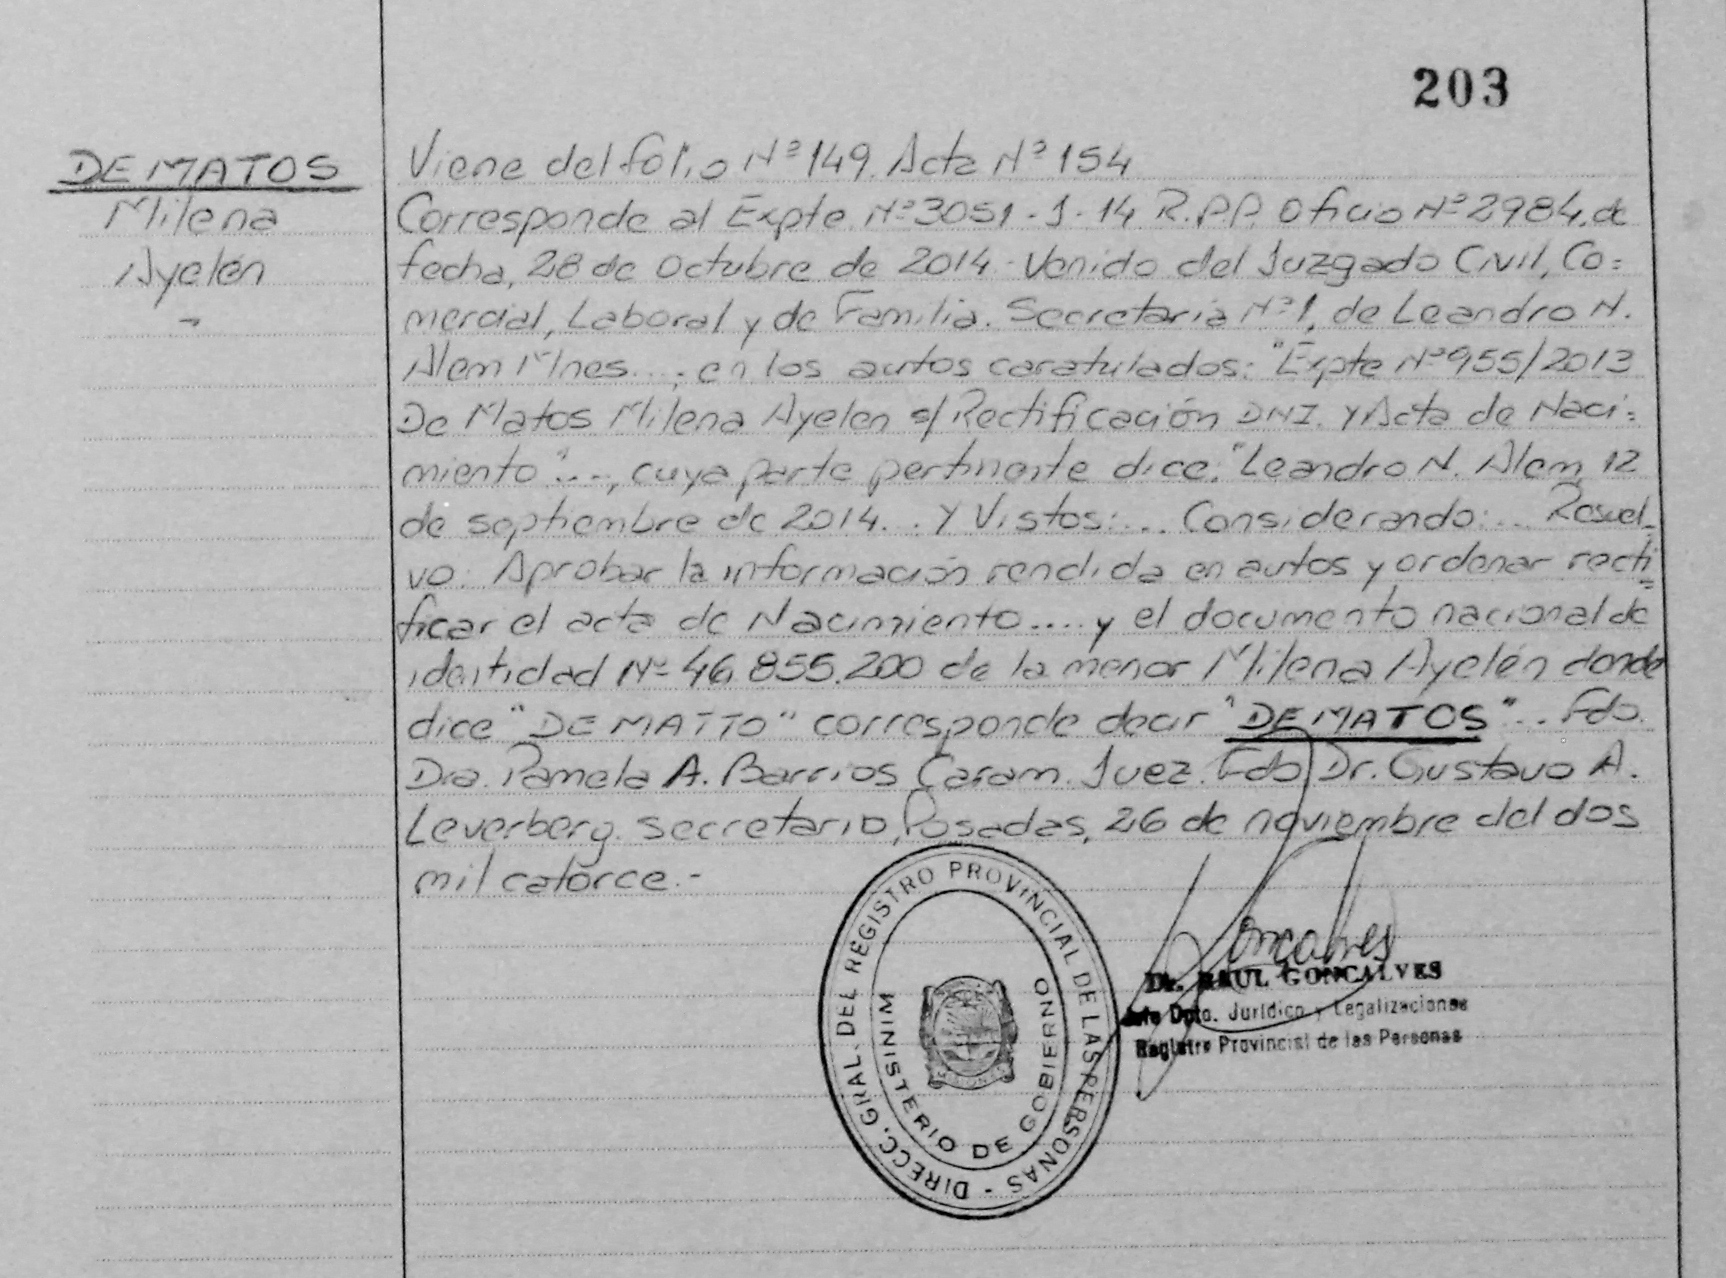 203
DE MATOS
Milena
Ayelén
Viene del folio Nº 149. Acta Nº 154
Corresponde al Expte. Nº 3051 - J - 14 R.P.P. Oficio Nº 2984, de
fecha, 28 de Octubre de 2014 - Venido del Juzgado Civil, Co=
mercial, Laboral y de Familia. Secretaria Nº 1, de Leandro N.
Alem Mnes...; en los autos caratulados: "Expte Nº 955/2013
De Matos Milena Ayelen s/ Rectificación DNI. Y Acta de Naci=
miento"..., cuya parte pertinente dice: "Leandro N. Alem, 12
de septiembre de 2014... Y Vistos:... Considerando:... Resuel_
vo: Aprobar la información rendida en autos y ordenar recti=
ficar el acta de Nacimiento.... y el documento nacional de
identidad Nº 46.855.200 de la menor Milena Ayelén donde
dice "DE MATTO" corresponde decir "DE MATOS"... Fdo.
Dra. Pamela A. Barrios Caram. Juez. Fdo Dr. Gustavo A.
Leverberg. secretario, Posadas, 26 de noviembre del dos
mil catorce.-
DIRECC. GRAL. DEL REGISTRO PROVINCIAL DE LAS PERSONAS -
MINISTERIO DE GOBIERNO
MISIONES
Goncalves
Dr. RAUL GONCALVES
Jefe Dpto. Jurídico y Legalizaciones
Registro Provincial de las Personas